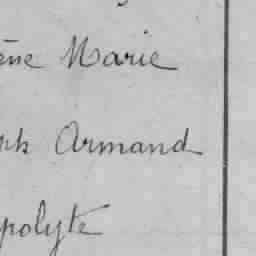 ène Marie
ph Armand
polyte